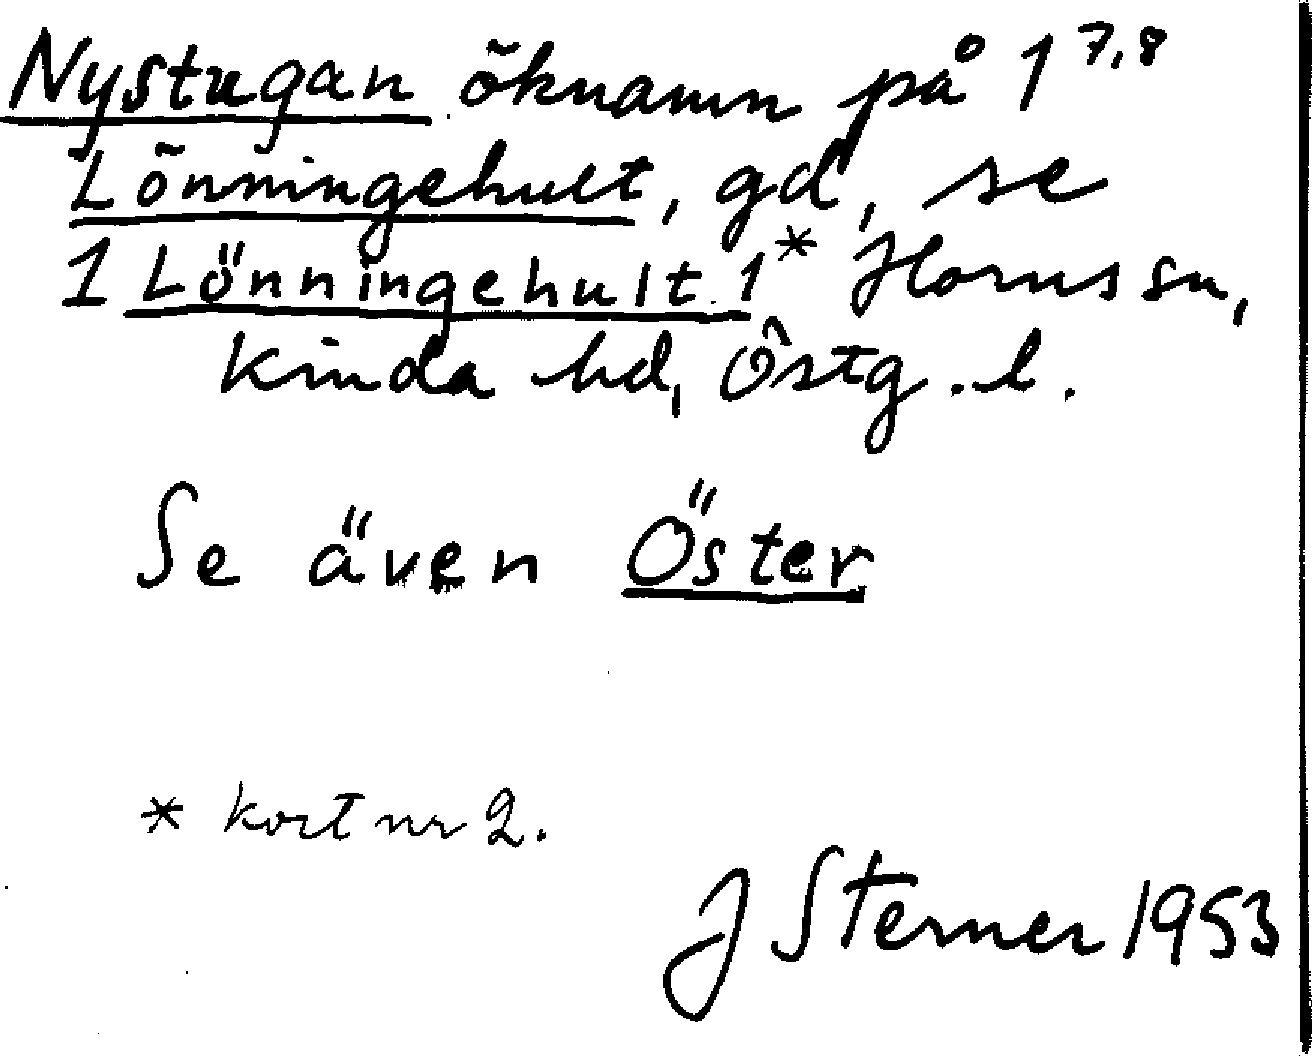 Nystugan öknamn på 1 7,8
Lönningehult, gd, se
1 Lönningehult 1* Horns sn,
Kinda hd, Östg. l.
Se även Öster
* kort nr 2.
J Sterner 1953